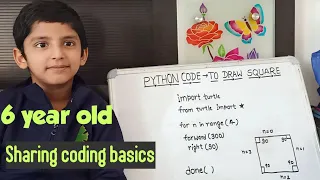 PYTHON CODE → TO DRAW SQUARE
6 year old
Sharing coding basics
import turtle
from turtle import *
for n in range(4)
forward(300)
right(90)
done()
n=0
n=1
n=2
n=3
90
90
90
90